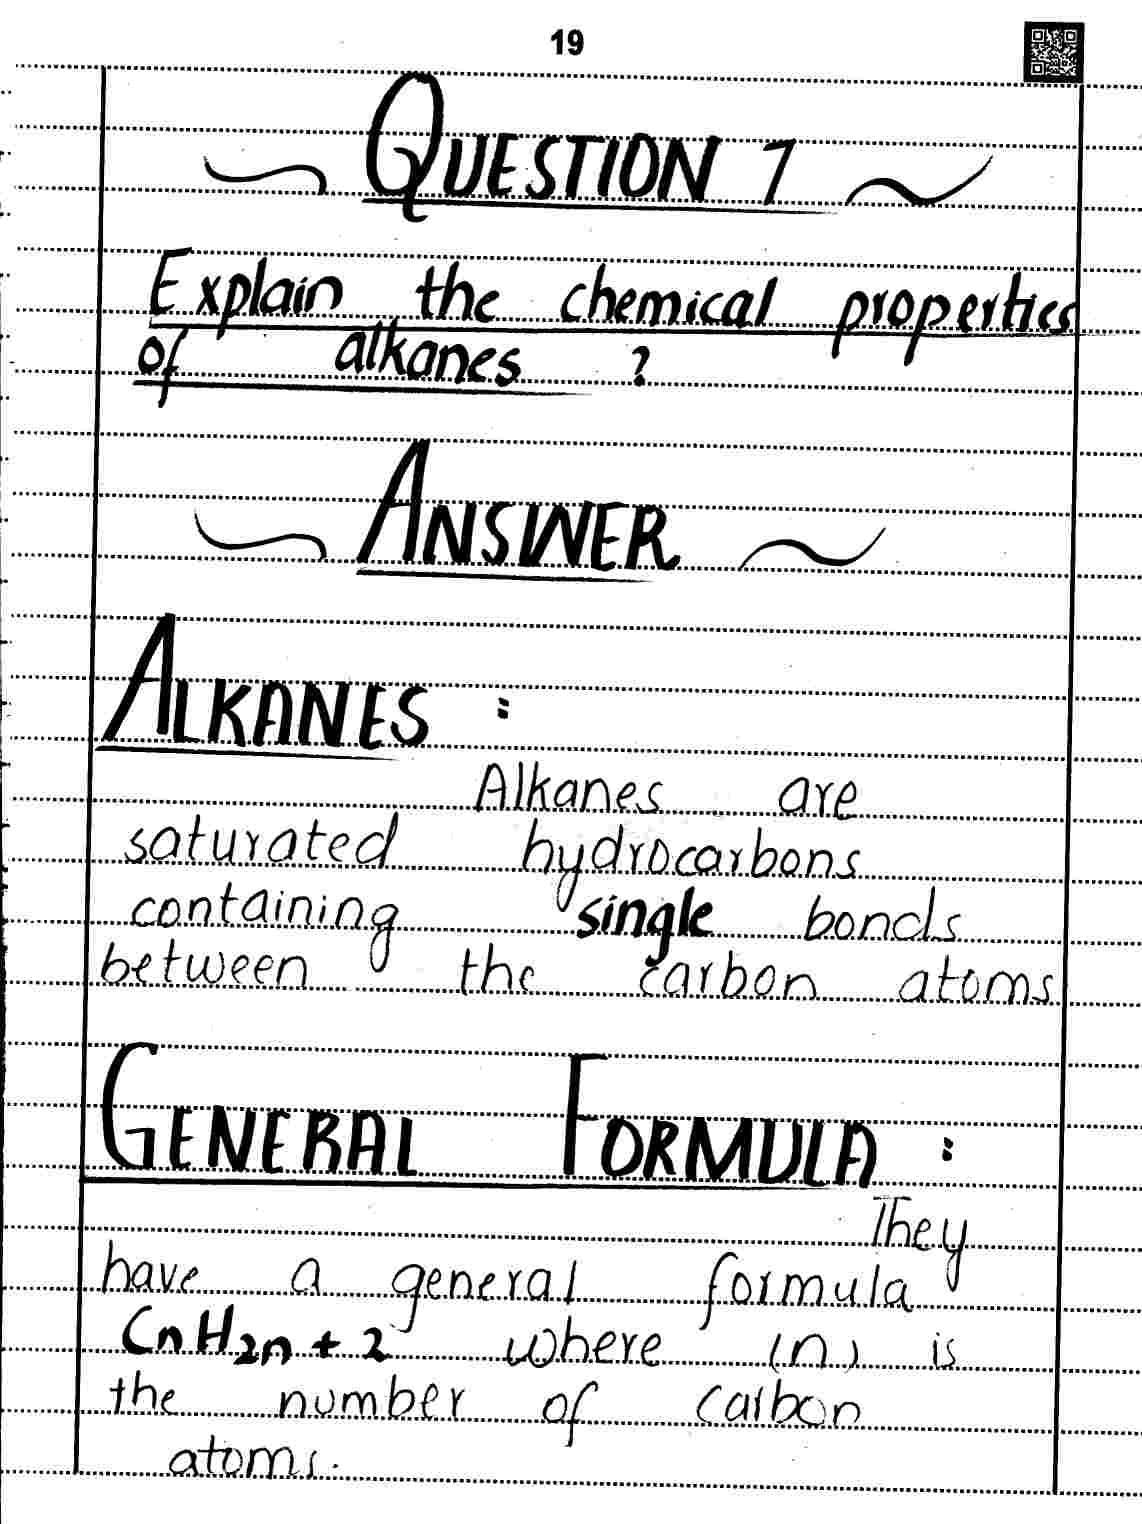 19
QUESTION 7
Explain the chemical properties
of alkanes ?
ANSWER
ALKANES :
Alkanes are
saturated hydrocarbons
containing single bonds
between the carbon atoms
GENERAL FORMULA :
They
have a general formula
CnH2n+2 where (n) is
the number of carbon
atoms.